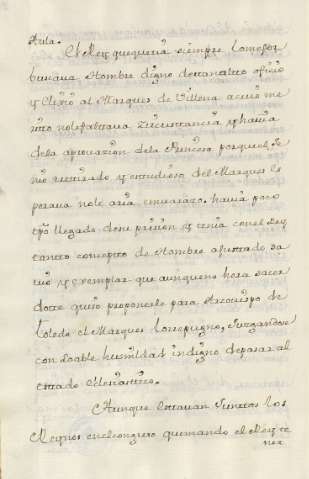 Aula.
El Rey que queria siempre lo mejor
buscava Hombre digno de tan alto oficio
y Eligio al Marques de Villena a cuio me
rito no le faltava Zircunstancia y havia
de la aprovazion de la Princesa porque el Ge
nio retirado y estudioso del Marques es
perava no le aria embarazo. havia poco
tpo llegado de mi prision y tenia con el Rey
tanto concepto de Hombre ajustado sa
vio y exemplar que aunque no hera sacer
dote quiso proponerle para Arzovispo de
Toledo el Marques lo repugno, Juzgandose
con loable humildad indigno de pasar al
estado Eclesiastico.
Aunque estavan Juntos los
Reynos en el congreso quemando el Rey te
ner